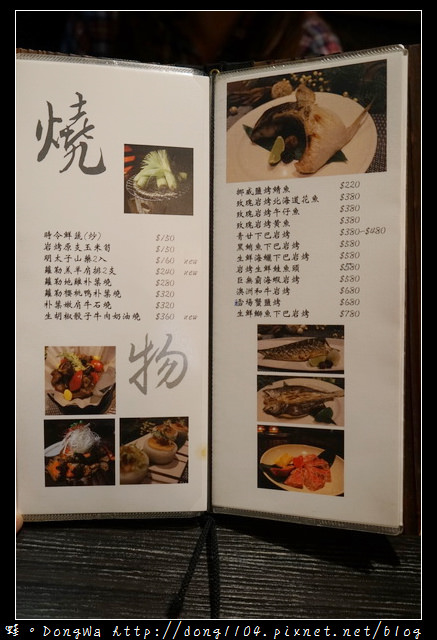 燒
時令鮮蔬(炒) $150
岩烤原支玉米筍 $150
明太子山藥2入 $160 new
羅勒羔羊肩排2支 $240 new
羅勒地雞朴葉燒 $280
羅勒櫻桃鴨朴葉燒 $320
朴葉嫩肩牛石燒 $320
生胡椒骰子牛肉奶油燒 $360 new
物
挪威鹽烤鯖魚 $220
玫瑰岩烤北海道花魚 $380
玫瑰岩烤午仔魚 $380
玫瑰岩烤黃魚 $380
青甘下巴岩烤 $380-$480
黑鮪魚下巴岩烤 $580
生鮮海鱺下巴岩烤 $580
岩烤生鮮鮭魚頭 $580
巨無霸海蝦岩烤 $580
澳洲和牛岩烤 $680
松場蟹鹽烤 $680
生鮮鰤魚下巴岩烤 $780
蛙。DongWa Http://dong1104.pixnet.net/blog